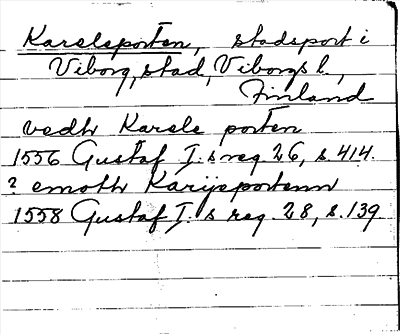 Karelsporten, stadsport i
Viborg, stad, Viborgs l.,
Finland
vedh Karele porten
1556 Gustaf I.s reg. 26, s. 414.
? emoth Karijeportenn
1558 Gustaf I.s reg. 28, s. 139.